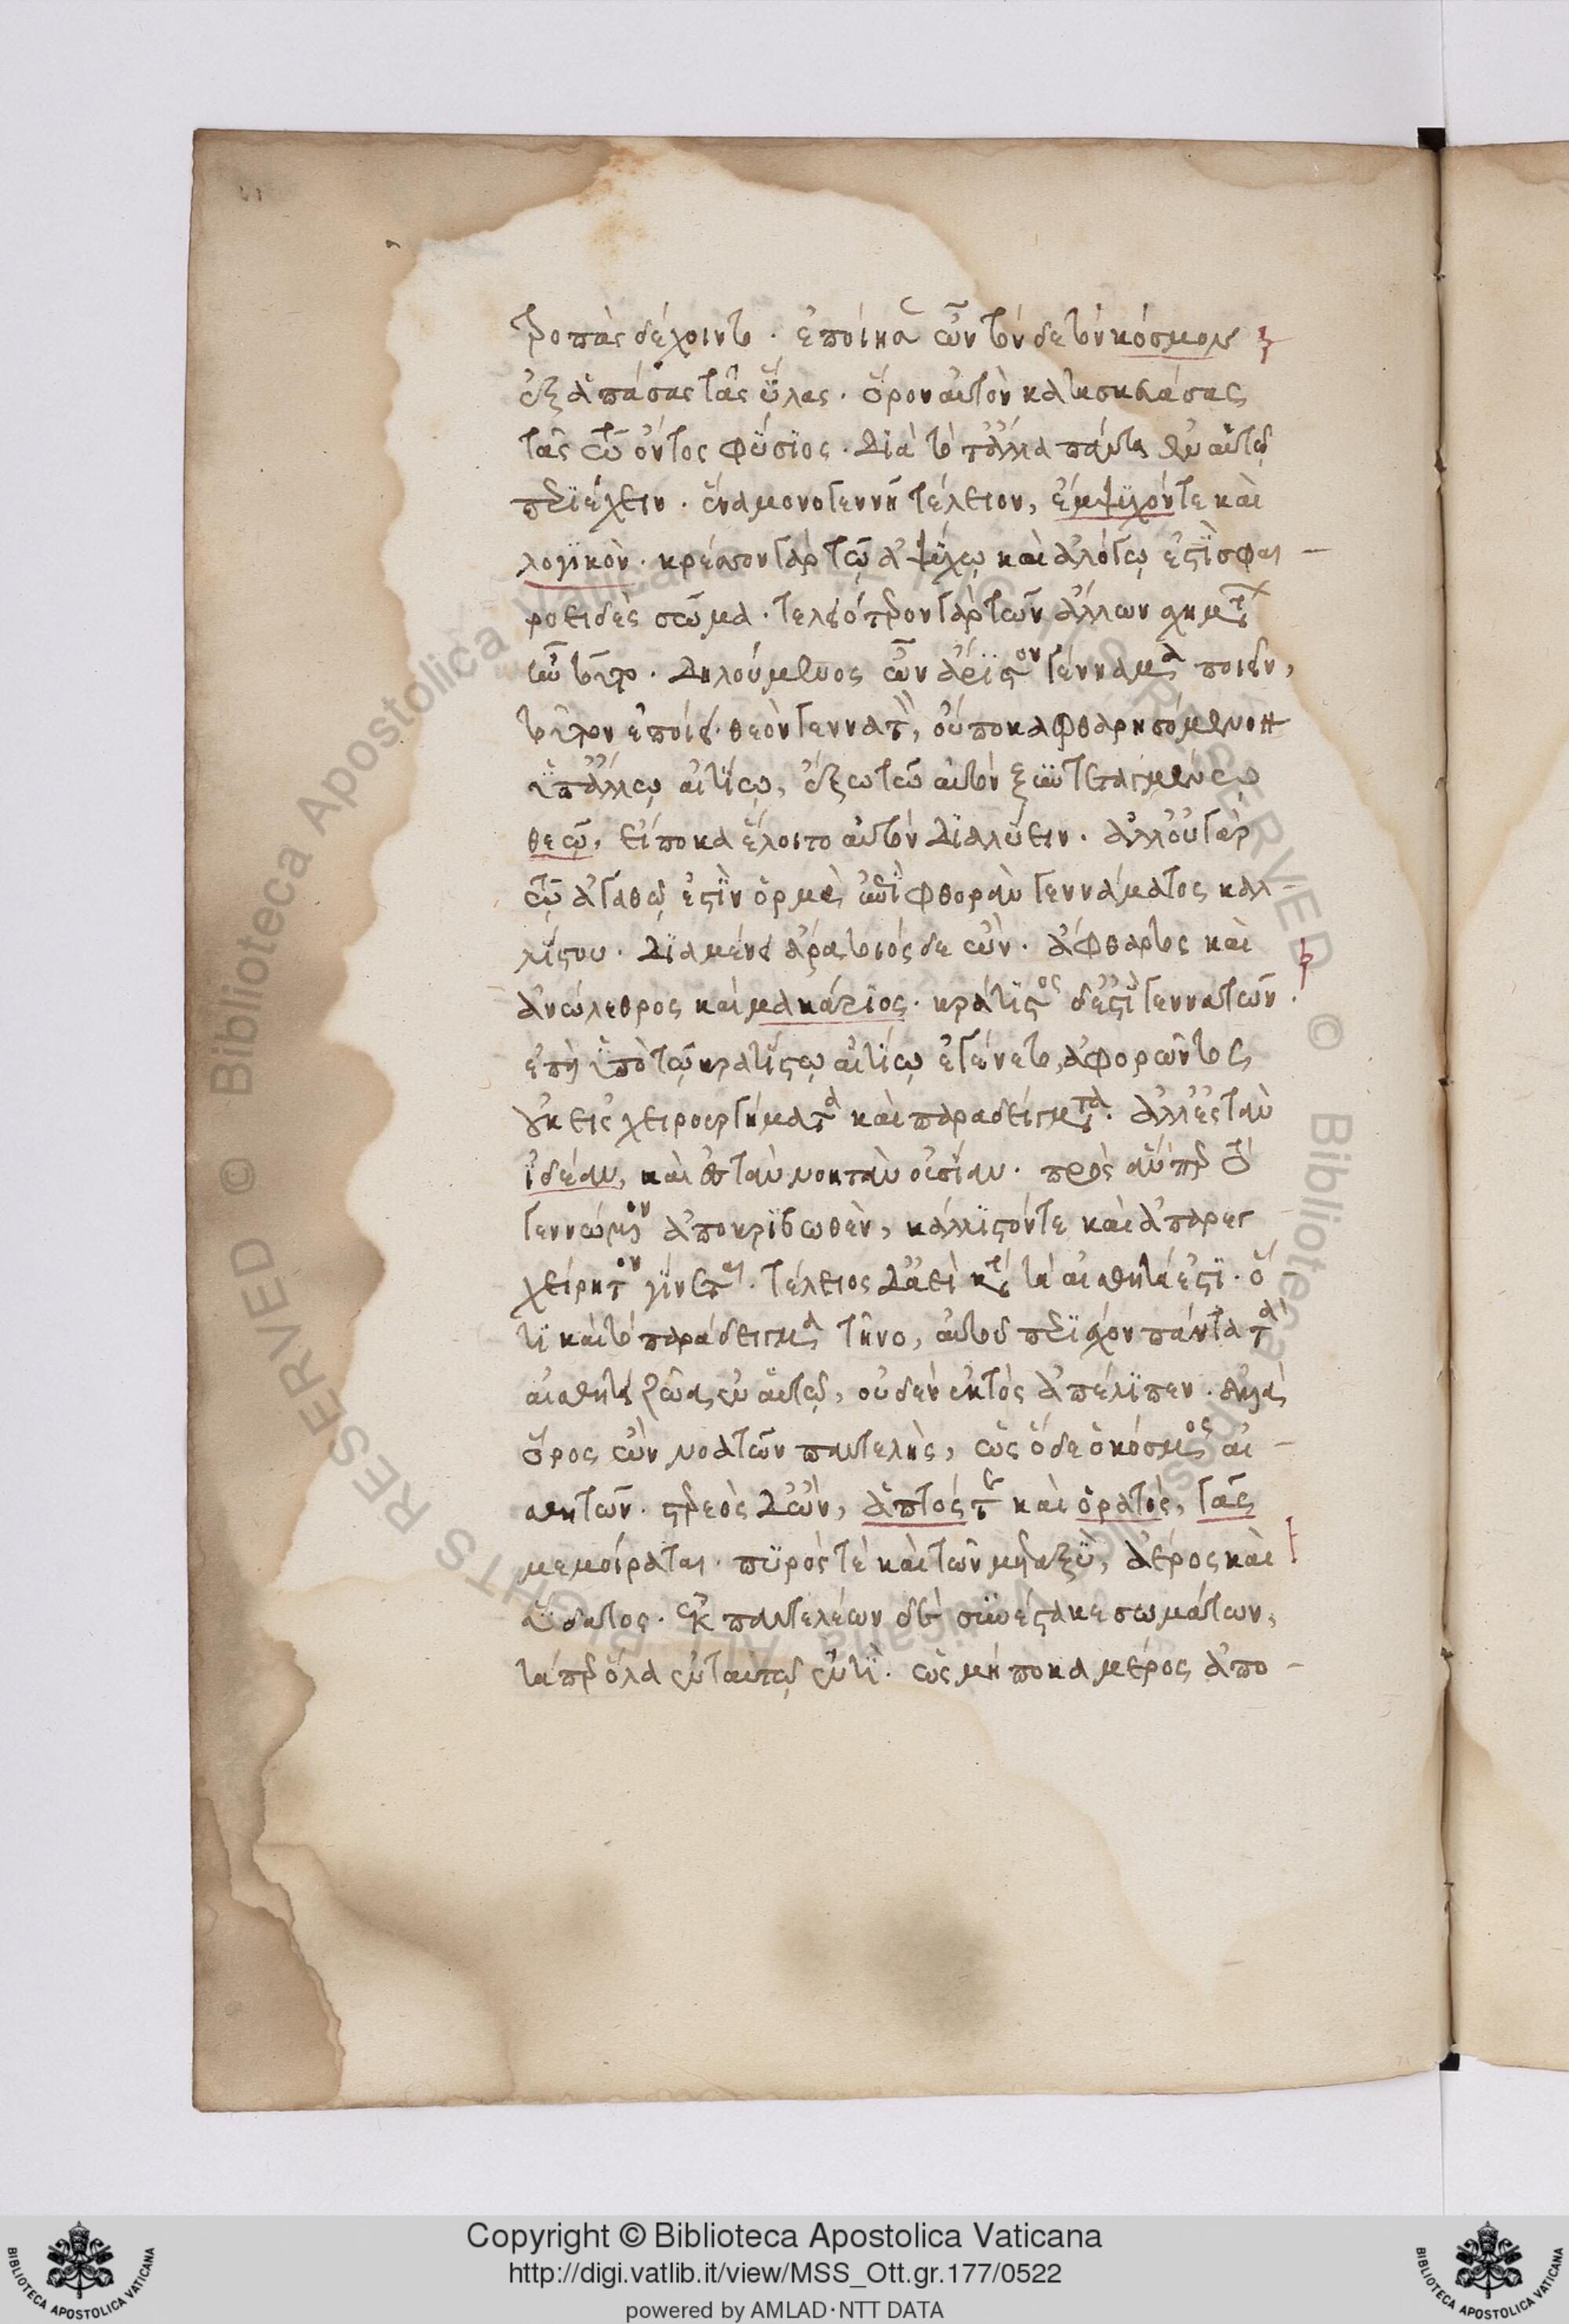 τροπὰς δέχοιντο. ἐποίησεν ὦν τόνδε τὸν κόσμον
ἐξ ἁπάσας τᾶς ὕλας. ὅρον αὐτὸν κατασκευάσας
τᾶς τῶ ὄντος φύσιος. διὰ τὸ τἄλλα πάντα ἐν αὑτῷ
περιέχειν. ἕνα μονογεννῆ τέλειον, ἔμψυχόν τε καὶ
λογικὸν. κρέσσον γὰρ τῶ ἀψύχω καὶ ἀλόγω ἐστὶ σφαι-
ροειδὲς σῶμα. τελειότερον γὰρ τῶν ἄλλων σχημάτων
ὦν τοῦτο. δηλούμενος ὦν ἄριστον γένναμα ποιεῖν,
τοῦτον ἐποίει θεὸν γεννατὸν, οὔποκα φθαρησόμενον
ὑπ' ἄλλω αἰτίω, ἔξω τῶ αὐτὸν συντεταγμένω
θεῶ, εἴποκα ἕλοιτο αὐτὸν διαλύειν. ἀλλ' οὐ γὰρ
τῶ ἀγαθῶ ἐστὶν ὁρμὲν ἐπὶ φθορὰν γεννάματος καλ-
λίστου. διαμένει ἄρα τοιόσδε ὤν. ἄφθαρτος καὶ
ἀνώλεθρος καὶ μακάριος. κράτιστος δ' ἐστὶ γεννατῶν.
ἐπεὶ ὑπὸ τῶ κρατίστω αἰτίω ἐγένετο, ἀφορῶντος
οὐκ εἰς χειρόκματα καὶ παραδείγματα. ἀλλ' ἐς τὰν
ἰδέαν, καὶ ἐς τὰν νοητὰν οὐσίαν. πρὸς ἅνπερ τὸ
γεννώμενον ἀποκριβωθὲν, κάλλιστόν τε καὶ ἀπαρεγ
χείρητον γίνεται. τέλειος δ' ἀεὶ κατὰ τὰ αἰσθητά ἐστι. ὅ
τι καὶ τὸ παράδειγμα τῆνο, αὐτοῦ περιέχον πάντα τὰ
αἰσθητὰ ζῶα ἐν αὑτῷ, οὐδὲν ἐκτὸς ἀπέλιπεν. ἄλλα
ὅρος ὢν νοατῶν παντελὴς, ὡς ὅδε ὁ κόσμος αἰ-
σθητῶν. στερεὸς δ' ὤν, ἁπτός τε καὶ ὁρατὸς, γᾶς
μεμοίραται. πυρός τὲ καὶ τῶν μεταξὺ, ἀέρος καὶ
ὕδατος. ἐκ παντελέων δὲ συνέστακε σωμάτων,
τάπερ ὅλα ἐν ταὐτῷ ἐντί. ὡς μήποκα μέρος ἀπο-
Copyright © Biblioteca Apostolica Vaticana
http://digi.vatlib.it/view/MSS_Ott.gr.177/0522
powered by AMLAD·NTT DATA